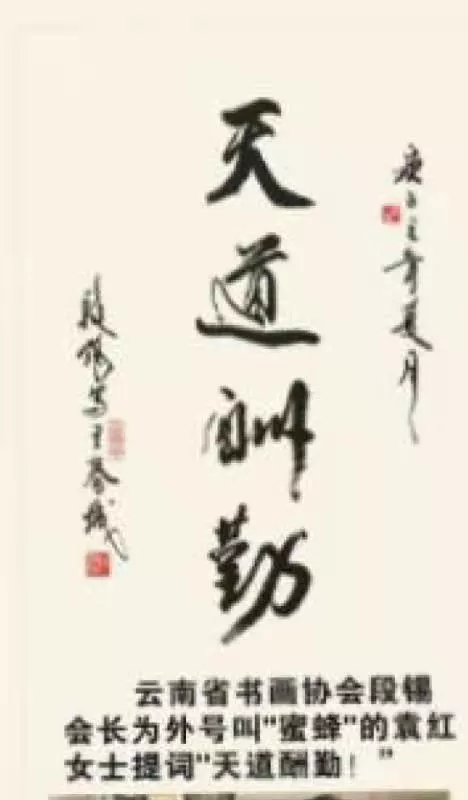 天道酬勤
庚子之年夏月
段锡写于春城
云南省书画协会段锡
会长为外号叫"蜜蜂"的袁红
女士提词"天道酬勤！"